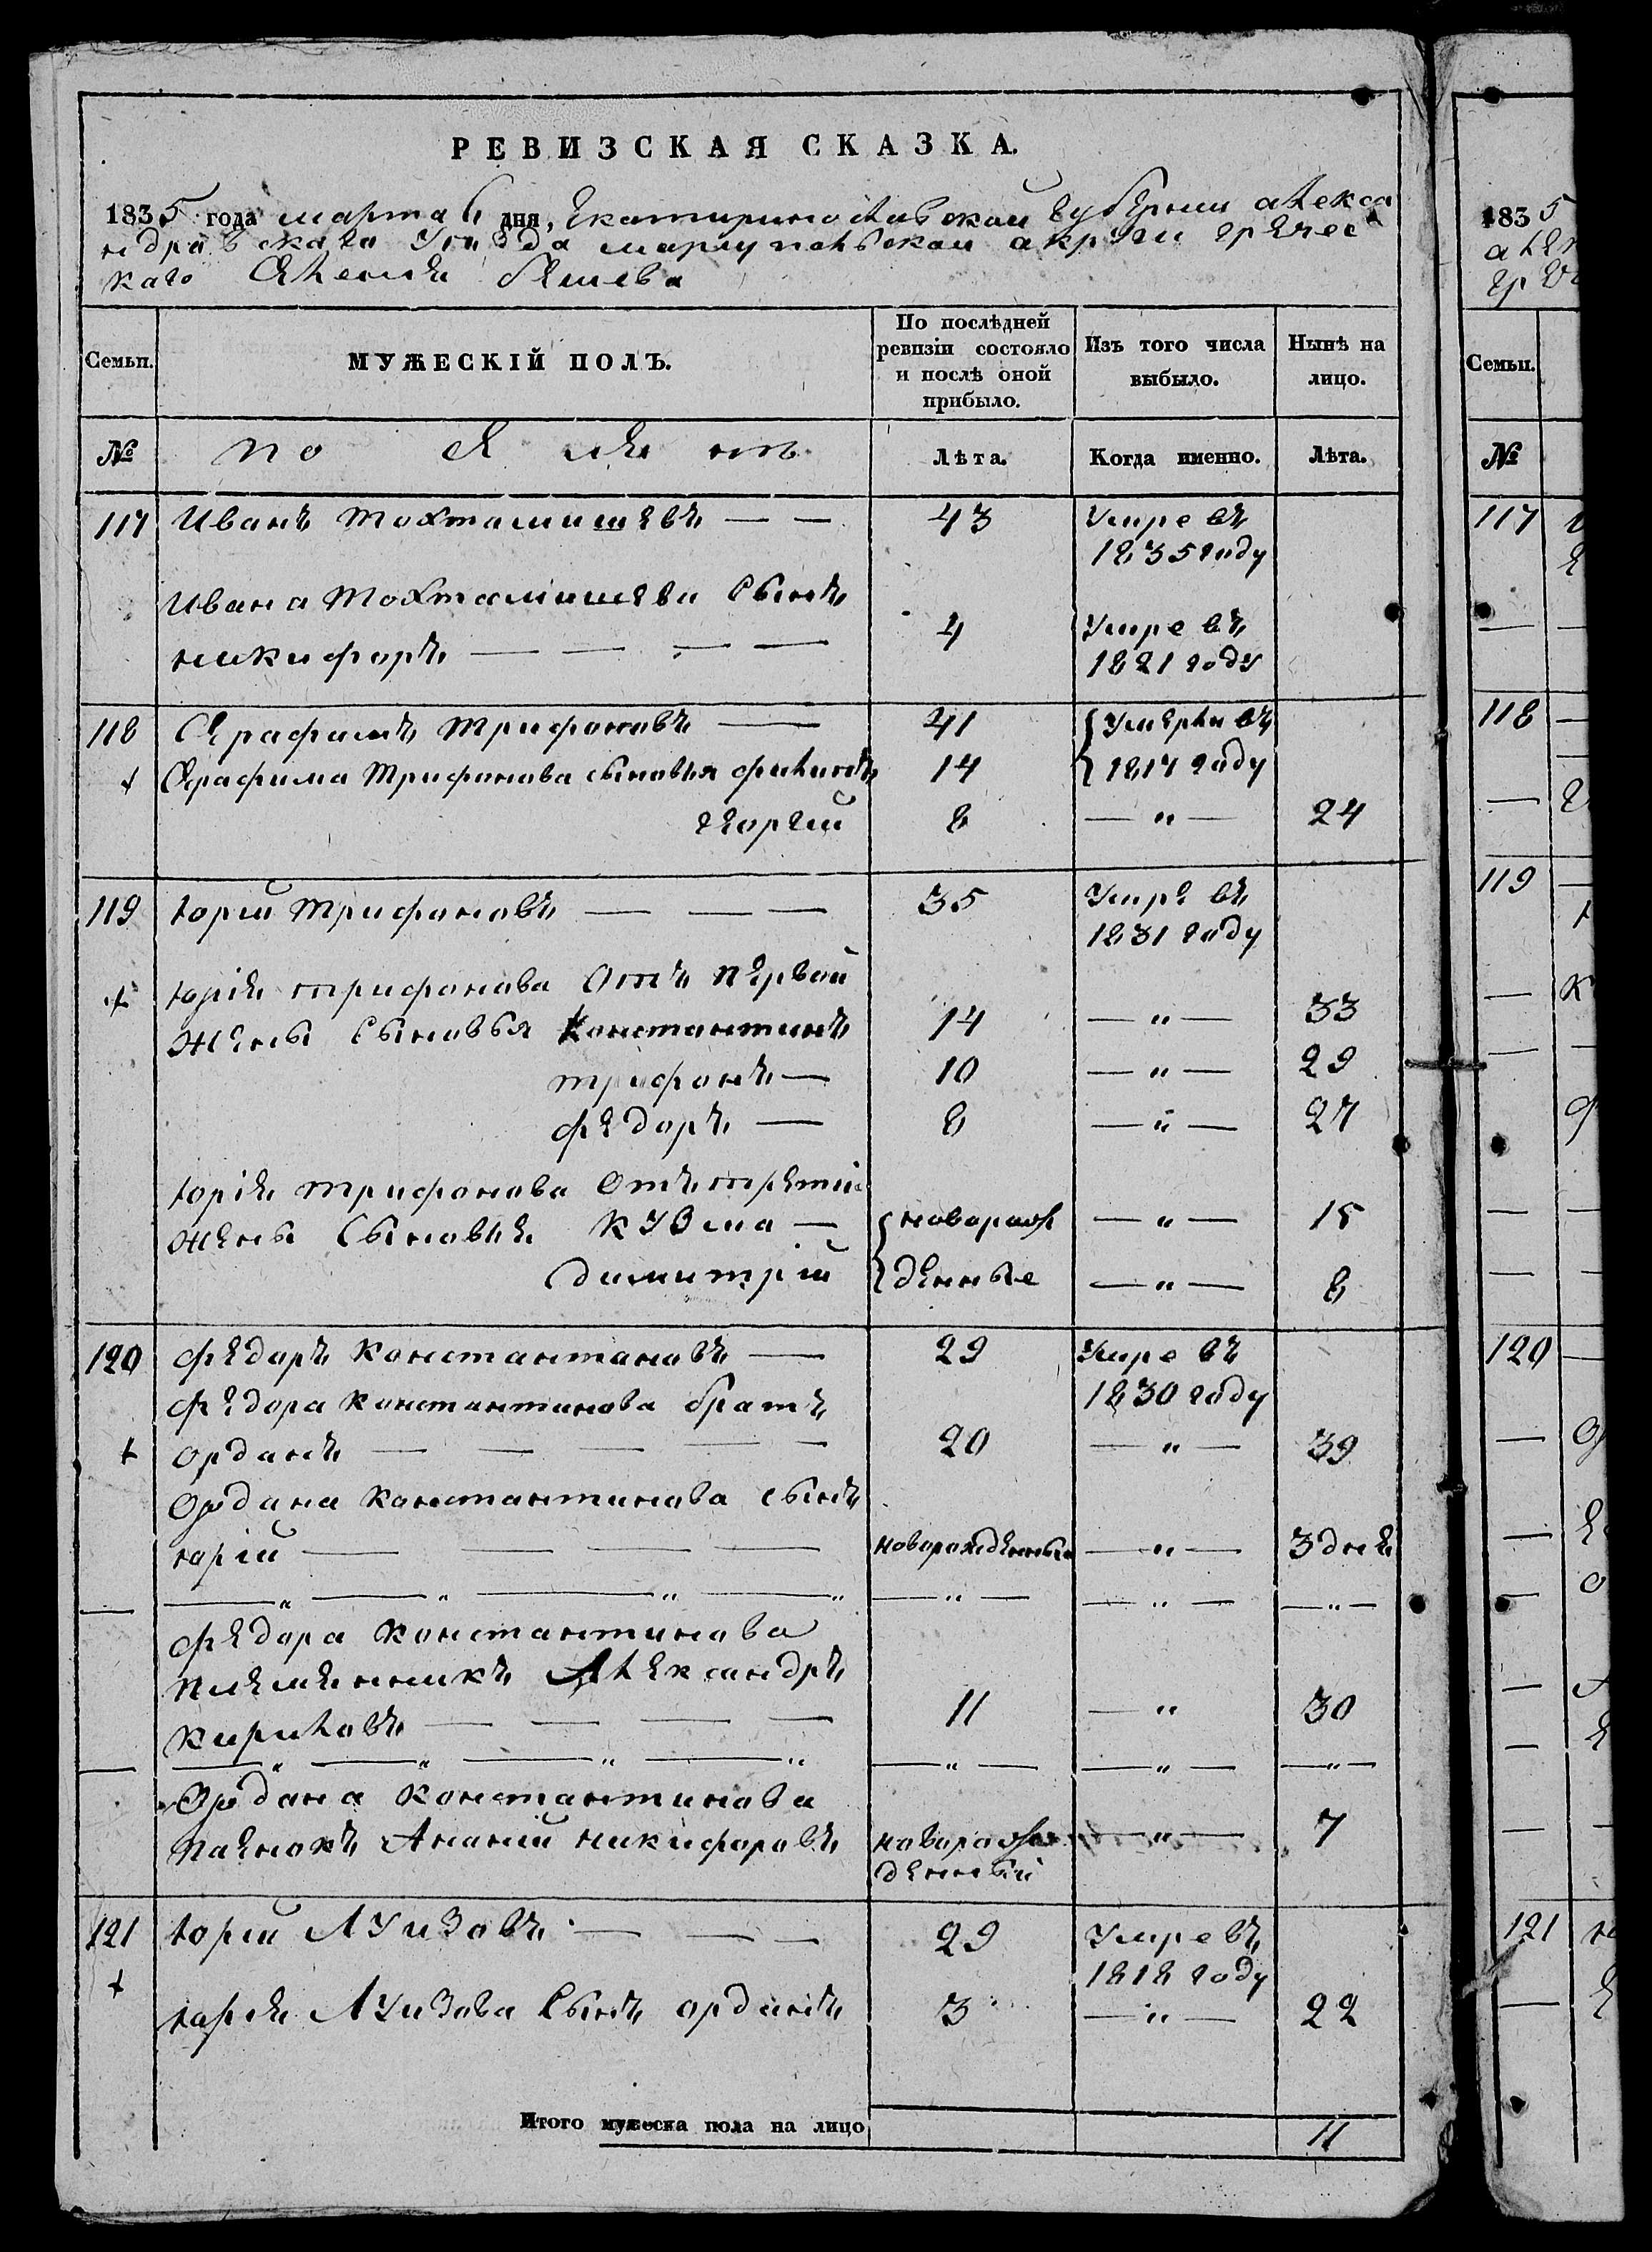 РЕВИЗСКАЯ СКАЗКА.
1835 года марта 6 дня, Екатиринославской Губернии алекса
ндравскаго Уизда мариупольской акруги гречес
каго селения бешева
Семьи. МУЖЕСКІЙ ПОЛЪ. По послѣдней ревизіи состояло и послѣ оной прибыло. Изъ того числа выбыло. Нынѣ на лицо.
№ Лѣта. Когда именно. Лѣта.
117 Иванъ Тохтамишевъ — — 43 Умре въ
1835 году
Ивана Тохтамишева Сынъ
никифоръ — — — — 4 Умре въ
1821 году
118 Серафимъ Трифоновъ — 41 Умерли въ
Серафима Трифонова сыновья филипъ 14 1817 году
георгий 8 — „ — 24
119 юрий Трифоновъ — — — 35 Умре въ
1831 году
юрия трифонова Отъ первой
жены Сыновья Константинъ 14 — „ — 33
трифонъ — 10 — „ — 29
федоръ — 8 — „ — 27
юрия трифонова Отъ третий
жены Сыновья Кузма — новорож — „ — 15
димитрий денные — „ — 8
120 федоръ константиновъ — 29 Умре въ
федора константинова братъ 1830 году
орданъ — — — — — 20 — „ — 39
Ордана константинова сынъ
юрий — — — — новорожденный — „ — 3 дне
— „ — „ — „ — „ — „ — — „ — — „ —
федора константинова
племенникъ Александръ
кириловъ — — — — 11 — „ 30
— „ — „ — „ — „ — „ — — „ — — „ —
Ордана константинова
Ананий никифоровъ новорож — „ — 7
денный
121 юрий — — — 29 Умре въ
1818 году
юрия Сынъ орданъ 3 — „ — 22
Итого мужеска пола на лицо 11
1835
Семьи.
№
117
118
119
120
121